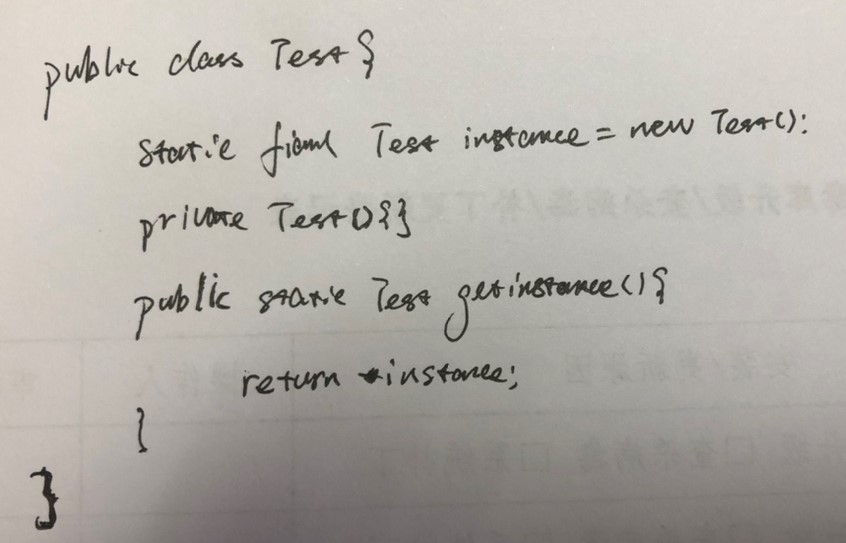 public class Test {
static final Test instance = new Test():
private Test(){}
public static Test getinstance(){
return instance;
}
}